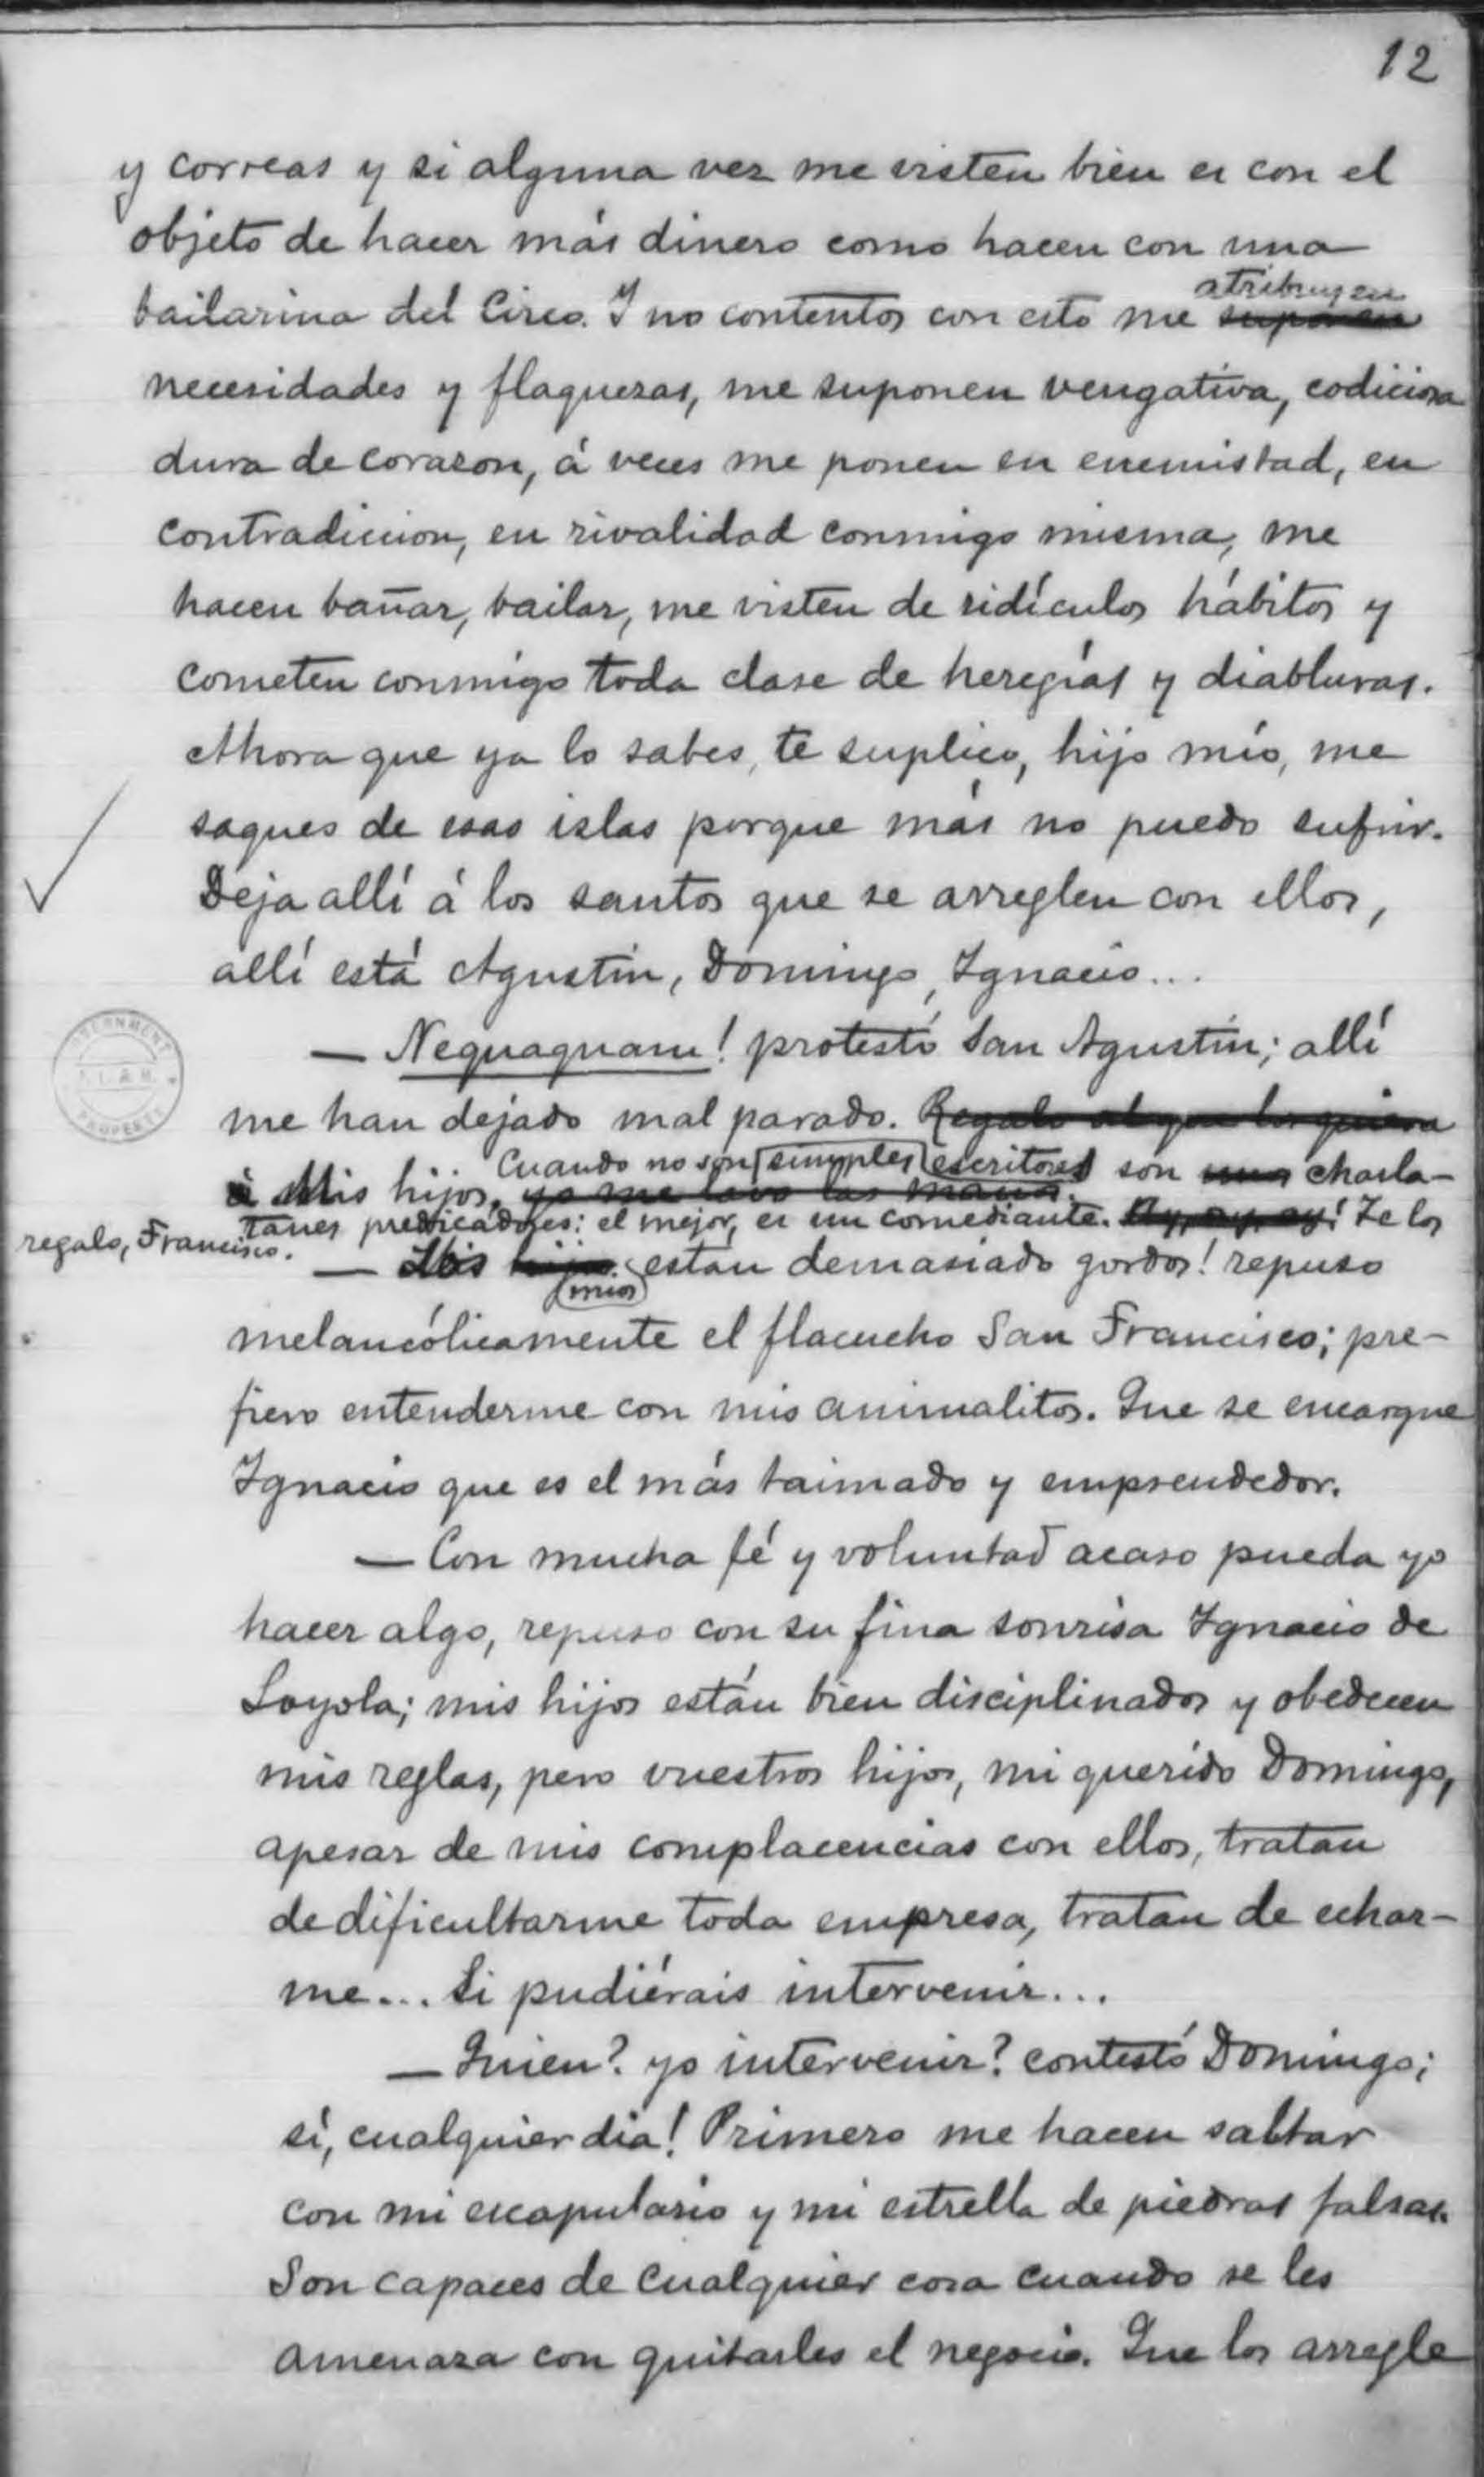 12
y correas y si alguna vez me visten bien es con el
objeto de hacer más dinero como hacen con una
bailarina del Circo. Y no contentos con esto me suponen atribuyen
necesidades y flaquezas, me suponen vengativa, codiciosa
dura de corazon, á veces me ponen en enemistad, en
contradiccion, en rivalidad conmigo misma, me
hacen bañar, bailar, me visten de ridículos hábitos y
cometen conmigo toda clase de heregías y diabluras.
Ahora que ya lo sabes, te suplico, hijo mío, me
saques de esas islas porque más no puedo sufrir.
Deja allí á los santos que se arreglen con ellos,
allí está Agustin, Domingo, Ignacio...
— Nequaquam! protestó San Agustín; allí
me han dejado mal parado. Regalo al que los quiera
á Mis hijos, yo me lavo las manos.
Cuando no son simples escritores son unos charla-
tanes predicadores: el mejor, es un comediante. Ay, ay, ay! Te los
regalo, Francisco.
— Mis hijos míos estan demasiado gordos! repuso
melancólicamente el flacucho San Francisco; pre-
fiero entenderme con mis animalitos. Que se encargue
Ignacio que es el más taimado y emprendedor.
— Con mucha fé y voluntad acaso pueda yo
hacer algo, repuso con su fina sonrisa Ignacio de
Loyola; mis hijos están bien disciplinados y obedecen
mis reglas, pero vuestros hijos, mi querido Domingo,
apesar de mis complacencias con ellos, tratan
de dificultarme toda empresa, tratan de echar-
me... Si pudiérais intervenir...
— Quien? yo intervenir? contestó Domingo;
sí, cualquier dia! Primero me hacen saltar
con mi escapulario y mi estrella de piedras falsas.
Son capaces de cualquier cosa cuando se les
amenaza con quitarles el negocio. Que los arregle
GOVERNMENT
PROPERTY